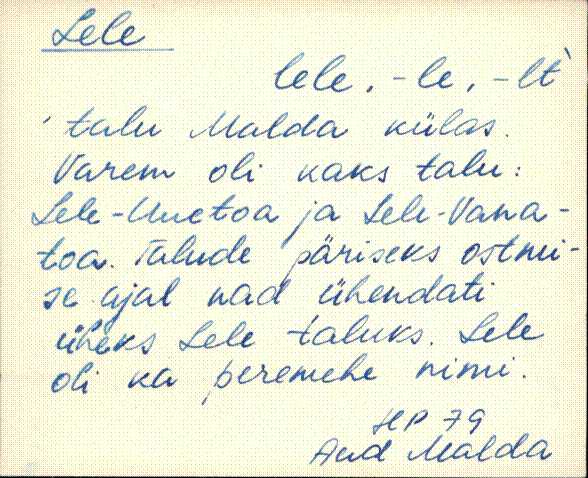 Lele
lele, -le, -lt`
talu Malda külas.
Varem oli kaks talu:
Lele-Uuetoa ja Lele-Vana-
toa. Talude päriseks ostmi-
se ajal nad ühendati
üheks Lele taluks. Lele
oli ka peremehe nimi.
HP 79
And Malda